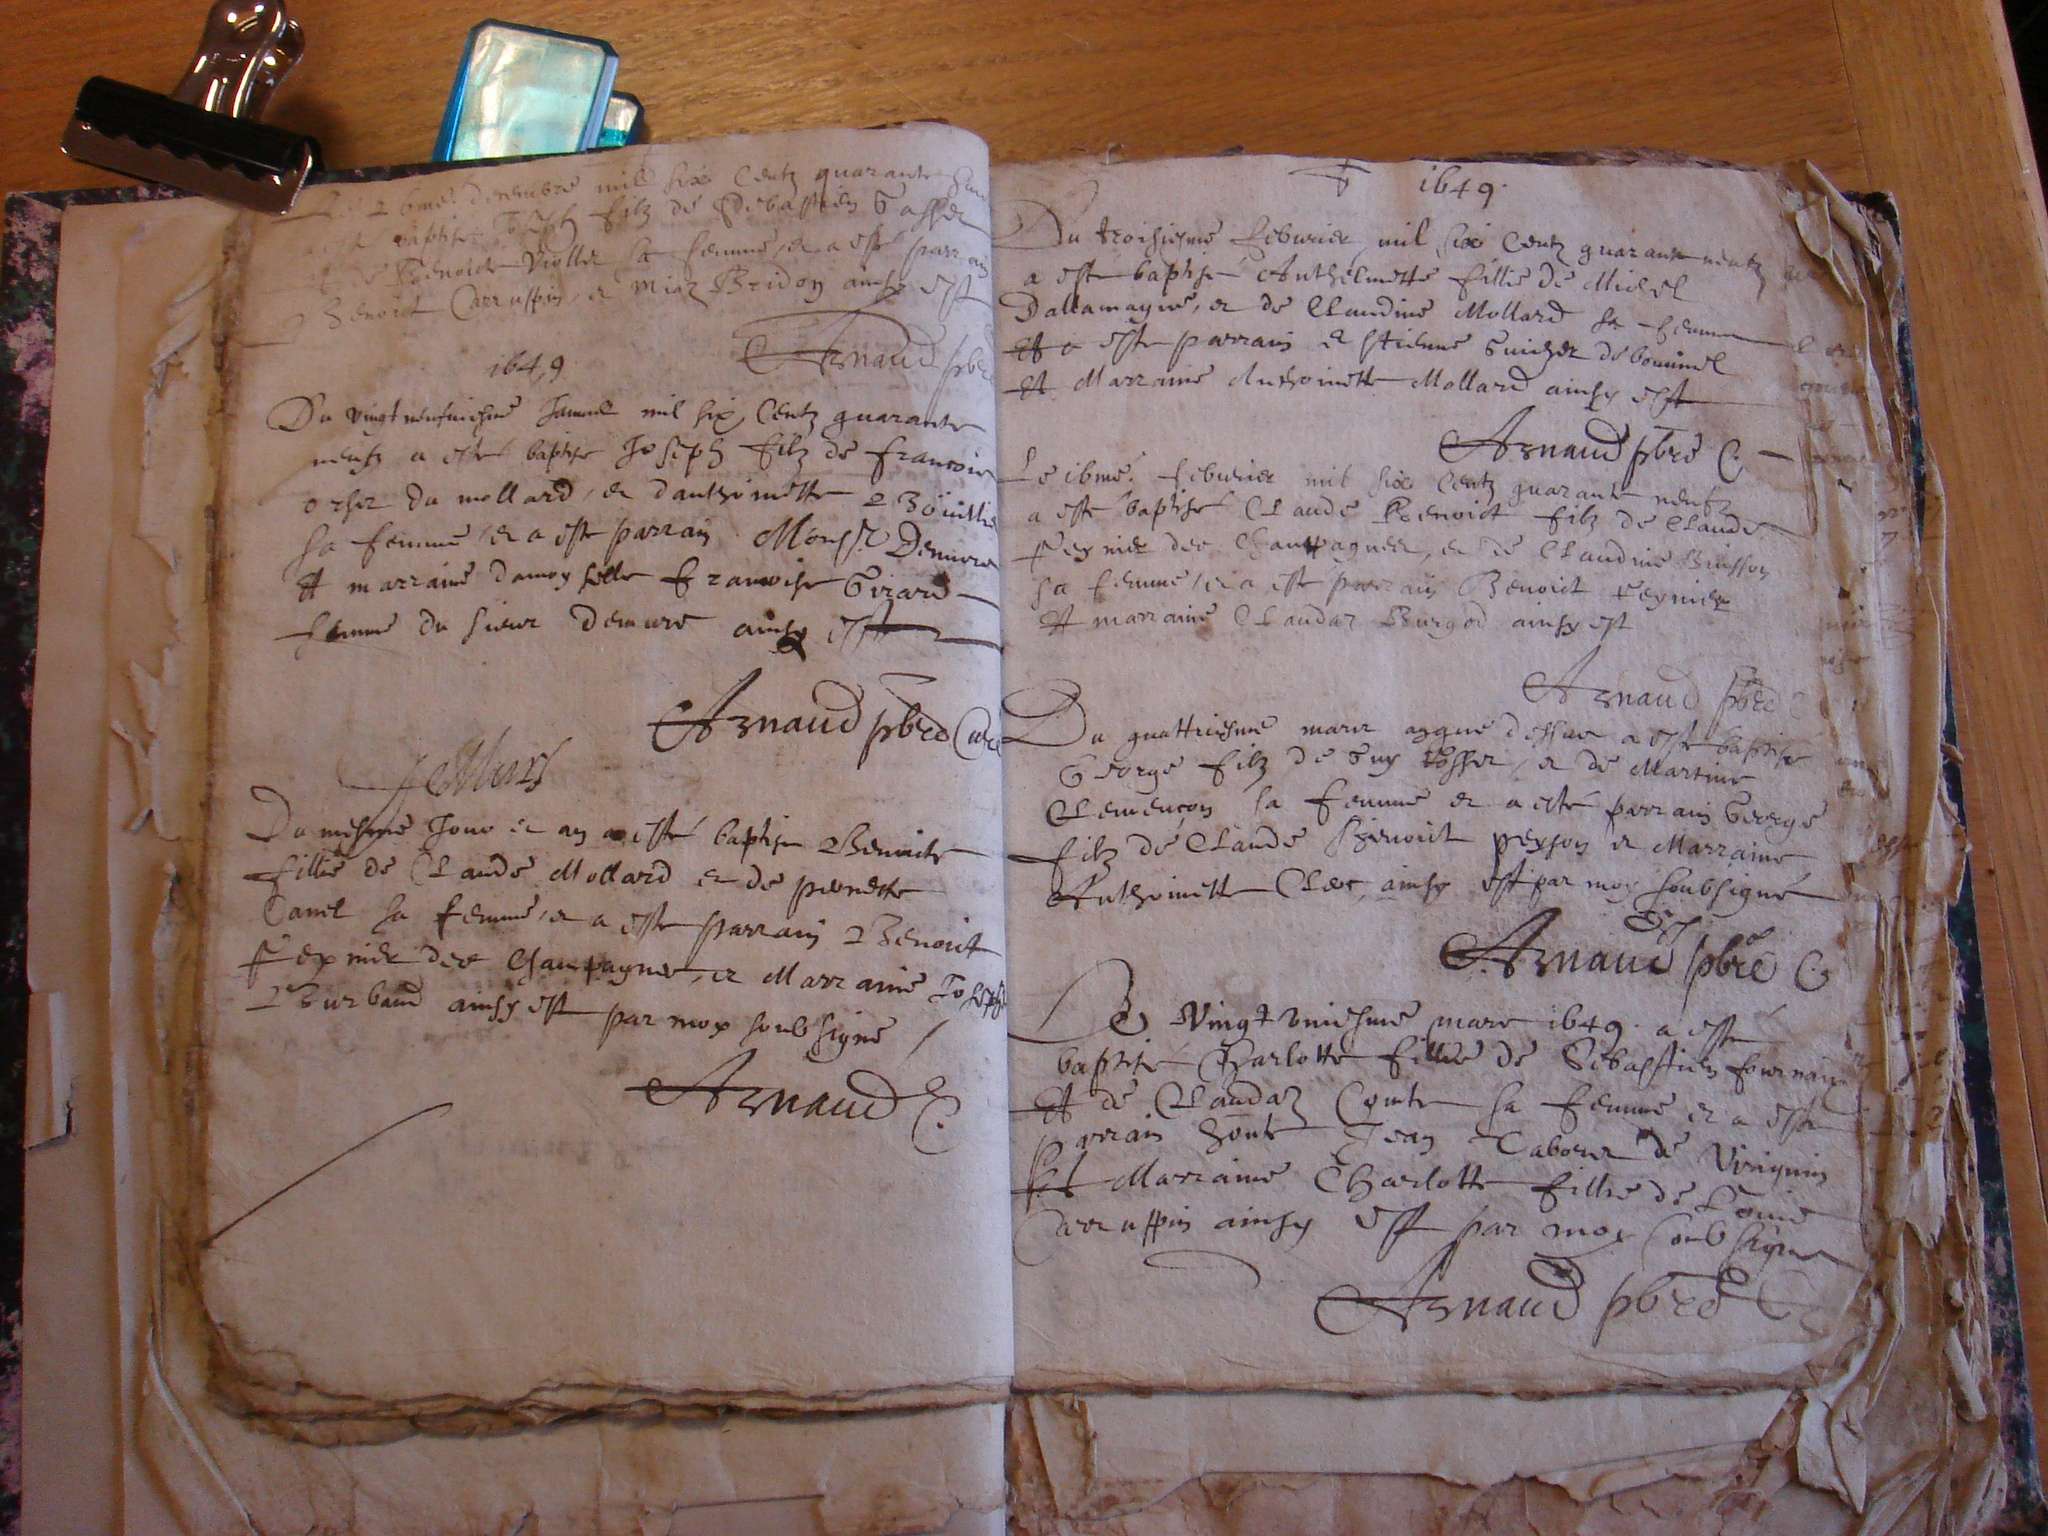 decembre mil six Centz quarante
baptise Joseph filz de Sebastien Gasser
Benoiste Viollet sa femme, et a esté parrain
benoict Carruspin, et Bridon ainsy est
Arnaud pbre
1649
Du vingt neufuiesme Januier mil six Centz quarante
neufz a esté baptise Joseph filz de francois
du mollard, et danthoinette
sa femme, et a esté parrain Monsr Demure
Et marraine damoyselle francoise Girard
femme du sieur Demure ainsy est
Arnaud pbre Curé
Du mesme Jour et an a esté baptise Benoiste
fillie de Claude Mollard et de pernette
Canel sa femme, et a esté parrain Benoict
feynier des Champagnes, et Marraine Josephe
Burbaud ainsy est par moy soubsigné
Arnaud C.
1649.
Du troisiesme feburier mil six Centz quarante neufz
a esté baptisé Anthelmette fillie de Michel
Dallamagne, et de Claudine Mollard sa femme
Et a esté parrain Estienne Guichet
Et Marraine Anthoinette Mollard ainsy est
Arnaud pbre C.
Le 16me. feburier mil six Centz quarante neufz
a esté baptisé Claude Benoict filz de Claude
feynier des Champagnes, et de Claudine Buisson
sa femme, et a esté parrain Benoict feynier
Et marraine Claudaz Burgod ainsy est
Arnaud pbre C
Du quattriesme mars que dessus a esté baptisé
George filz de Guy et de Martine
Clemençon sa femme et a esté parrain George
filz de Claude Benoict peyson et Marraine
Anthoinette Clerc, ainsy est par moy soubsigné
Arnaud pbre C.
Le Vingt uniesme mars 1649. a esté
baptisé Charlotte fillie de Sebastien fournaz
Et de Claudaz Comte sa femme et a esté
parrain honte Jean Taborat de Virignin
Et Marraine Charlotte fillie de Louis
Carruspin ainsy est par moy soubsigné
Arnaud pbre C